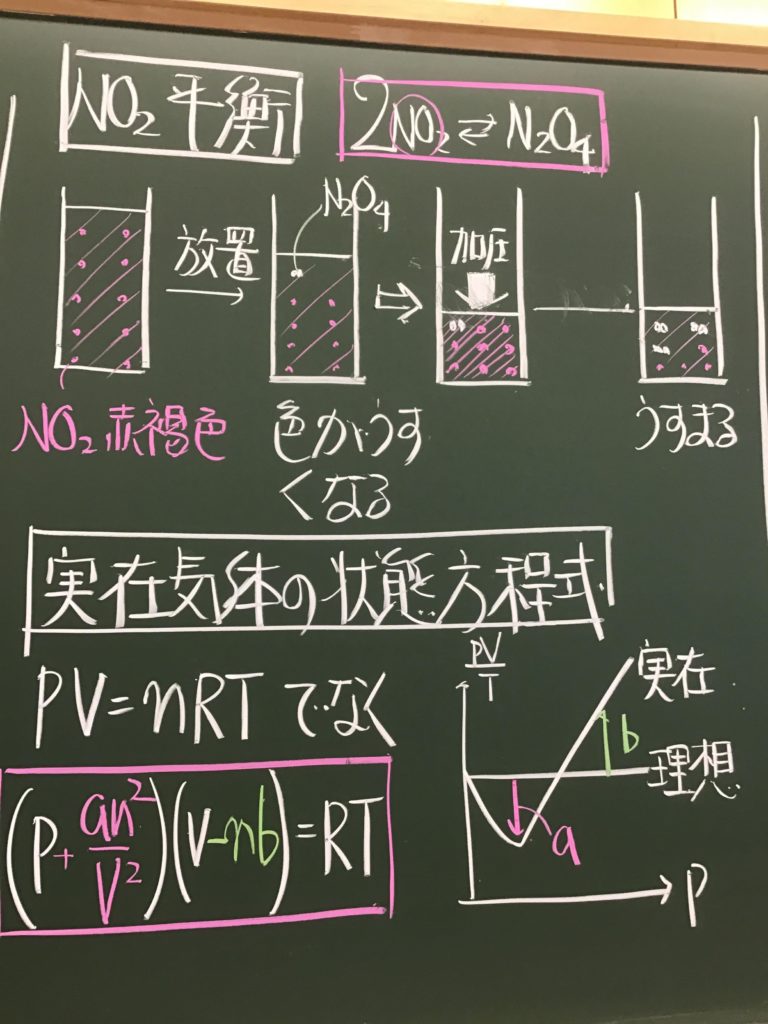 NO₂ 平衡
2NO₂ ⇄ N₂O₄
放置
N₂O₄
加圧
NO₂ 赤褐色
色がうす
くなる
うすまる
実在気体の状態方程式
PV=nRTでなく
(P+an²/V²)(V-nb)=RT
PV/T
実在
b
理想
a
P